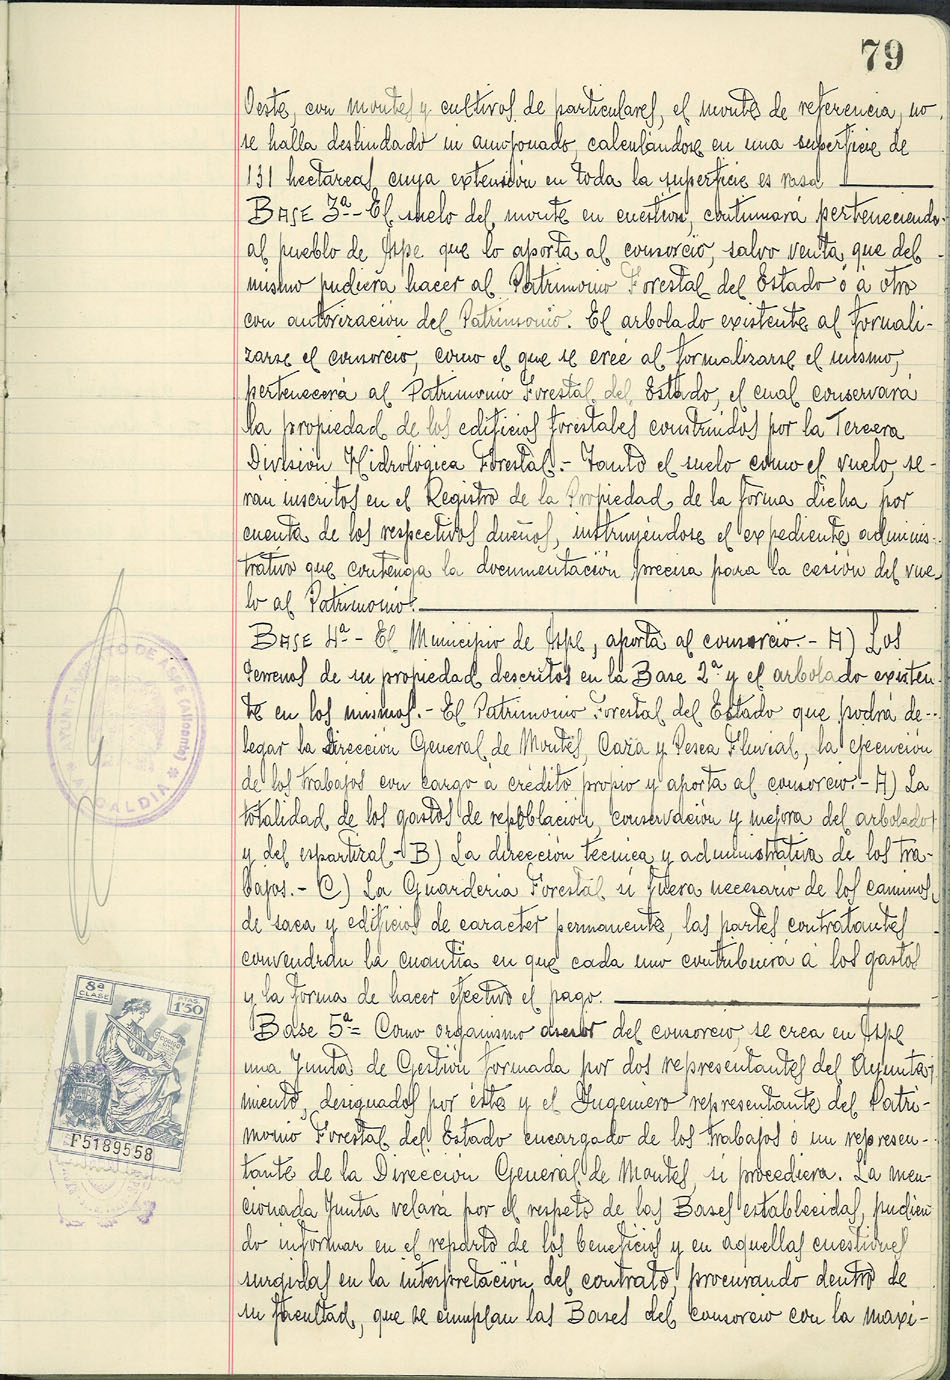 79
Oeste, con montes y cultivos de particulares, el monte de referencia, no
se halla deslindado ni amojonado, calculándose en una superficie de
131 hectareas, cuya extensión en toda la superficie es rasa
BASE 3ª- El suelo del monte en cuestión, continuará perteneciendo
al pueblo de Aspe que lo aporta al consorcio, salvo venta que del
mismo pudiera hacer al Patrimonio Forestal del Estado ó á otro
con autorización del Patrimonio. El arbolado existente al formali-
zarse el consorcio, como el que se creé al formalizarse el mismo,
pertenecerá al Patrimonio Forestal del Estado, el cual conservará
la propiedad de los edificios forestales construidos por la Tercera
División Hidrológica Forestal.- Tanto el suelo como el vuelo, se-
rán inscritos en el Registro de la Propiedad de la forma dicha por
cuenta de los respectivos dueños, instruyéndose el expediente adminis-
trativo que contenga la documentación precisa para la cesión del vue-
lo al Patrimonio.
BASE 4ª- El Municipio de Aspe, aporta al consorcio.- A) Los
terrenos de su propiedad descritos en la Base 2ª y el arbolado existen-
te en los mismos.- El Patrimonio Forestal del Estado que podrá de-
legar la Dirección General de Montes, Caza y Pesca Fluvial, la ejecución
de los trabajos con cargo á crédito propio y aporta al consorcio.- A) La
totalidad de los gastos de repoblación, conservación y mejora del arbolado
y del espartizal- B) La dirección técnica y administrativa de los tra-
bajos.- C) La Guarderia Forestal si fuera necesario de los caminos
de saca y edificios de caracter permanente, las partes contratantes
convendrán la cuantia en que cada uno contribuirá á los gastos
y la forma de hacer efectivo el pago.
Base 5ª= Como organismo asesor del consorcio, se crea en Aspe
una Junta de Gestión formada por dos representantes del Ayunta-
miento, designados por éste y el Ingeniero representante del Patri-
monio Forestal del Estado encargado de los trabajos ó un represen-
tante de la Dirección General de Montes, si procediera. La men-
cionada Junta velará por el respeto de las Bases establecidas, pudien
do informar en el reparto de los beneficios y en aquellas cuestiones
surgidas en la interpretación del contrato, procurando dentro de
su facultad, que se cumplan las Bases del consorcio con la maxi-
AYUNTAMIENTO DE ASPE (Alicante)
* ALCALDIA *
8ª CLASE
PTAS 1'50
F5189558